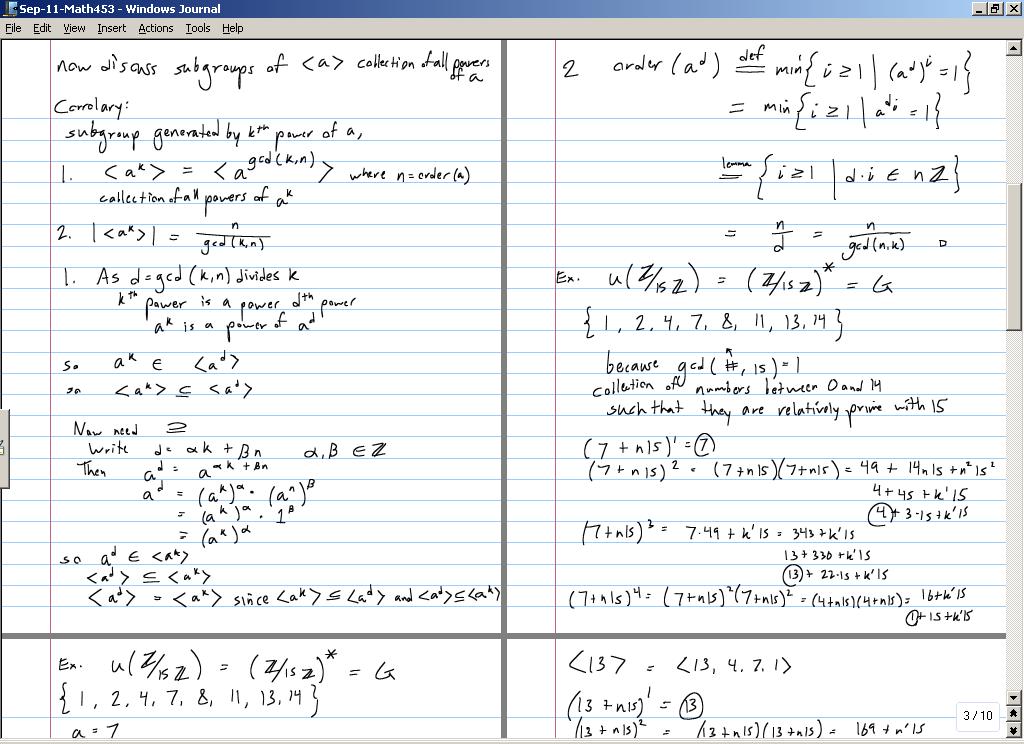 Sep-11-Math453 - Windows Journal
File Edit View Insert Actions Tools Help
now discuss subgroups of <a> collection of all powers of a
Corrolary:
subgroup generated by kth power of a,
1. <a^k> = <a^gcd(k,n)> where n=order(a)
collection of all powers of a^k
2. |<a^k>| = n / gcd(k,n)
1. As d=gcd(k,n) divides k
kth power is a power dth power
a^k is a power of a^d
so a^k ∈ <a^d>
so <a^k> ⊆ <a^d>
Now need ⊇
Write d= αk + βn α,β ∈ ℤ
Then a^d = a^(αk + βn)
a^d = (a^k)^α · (a^n)^β
= (a^k)^α · 1^β
= (a^k)^α
so a^d ∈ <a^k>
<a^d> ⊆ <a^k>
<a^d> = <a^k> since <a^k> ⊆ <a^d> and <a^d> ⊆ <a^k>
2 order(a^d) def= min{ i ≥ 1 | (a^d)^i = 1}
= min{ i ≥ 1 | a^di = 1}
lemma= { i ≥ 1 | d·i ∈ nℤ}
= n/d = n / gcd(n,k) □
Ex. U(ℤ/15ℤ) = (ℤ/15ℤ)* = G
{ 1, 2, 4, 7, 8, 11, 13, 14 }
because gcd(#, 15) = 1
collection of numbers between 0 and 14
such that they are relatively prime with 15
(7 + n15)^1 = 7
(7 + n15)^2 = (7+n15)(7+n15) = 49 + 14n15 + n^2 15^2
4 + 45 + k'15
4 + 3·15 + k'15
(7+n15)^3 = 7·49 + k'15 = 343 + k'15
13 + 330 + k'15
13 + 22·15 + k'15
(7+n15)^4 = (7+n15)^2 (7+n15)^2 = (4+n15)(4+n15) = 16 + k'15
1 + 15 + k'15
Ex. U(ℤ/15ℤ) = (ℤ/15ℤ)* = G
{ 1, 2, 4, 7, 8, 11, 13, 14 }
a = 7
<13> = <13, 4, 7, 1>
(13 + n15)^1 = 13
(13 + n15)^2 = (13+n15)(13+n15) = 169 + n'15
3 / 10